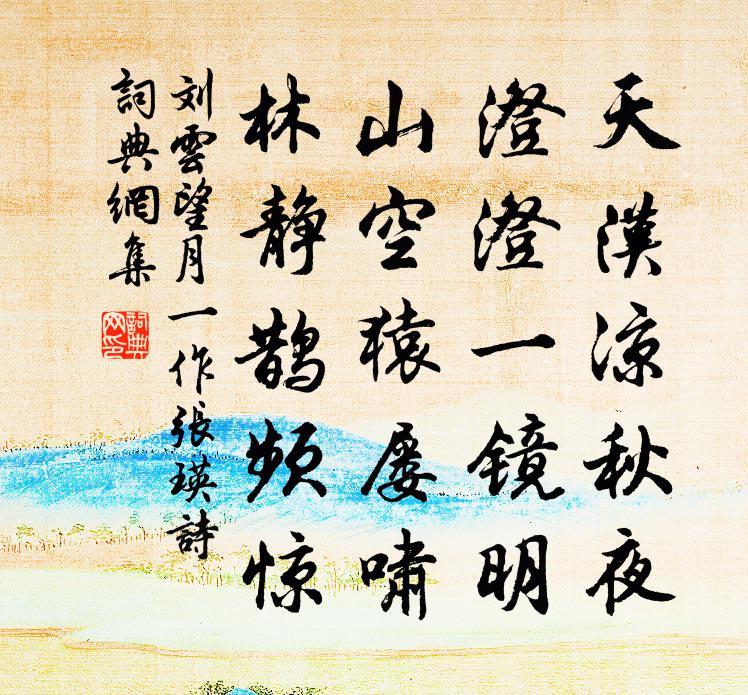 天漢凉秋夜
澄澄一镜明
山空猿屡啸
林静鹊频惊
刘雲望月一作張瑛詩
詞典網集
詞典网印